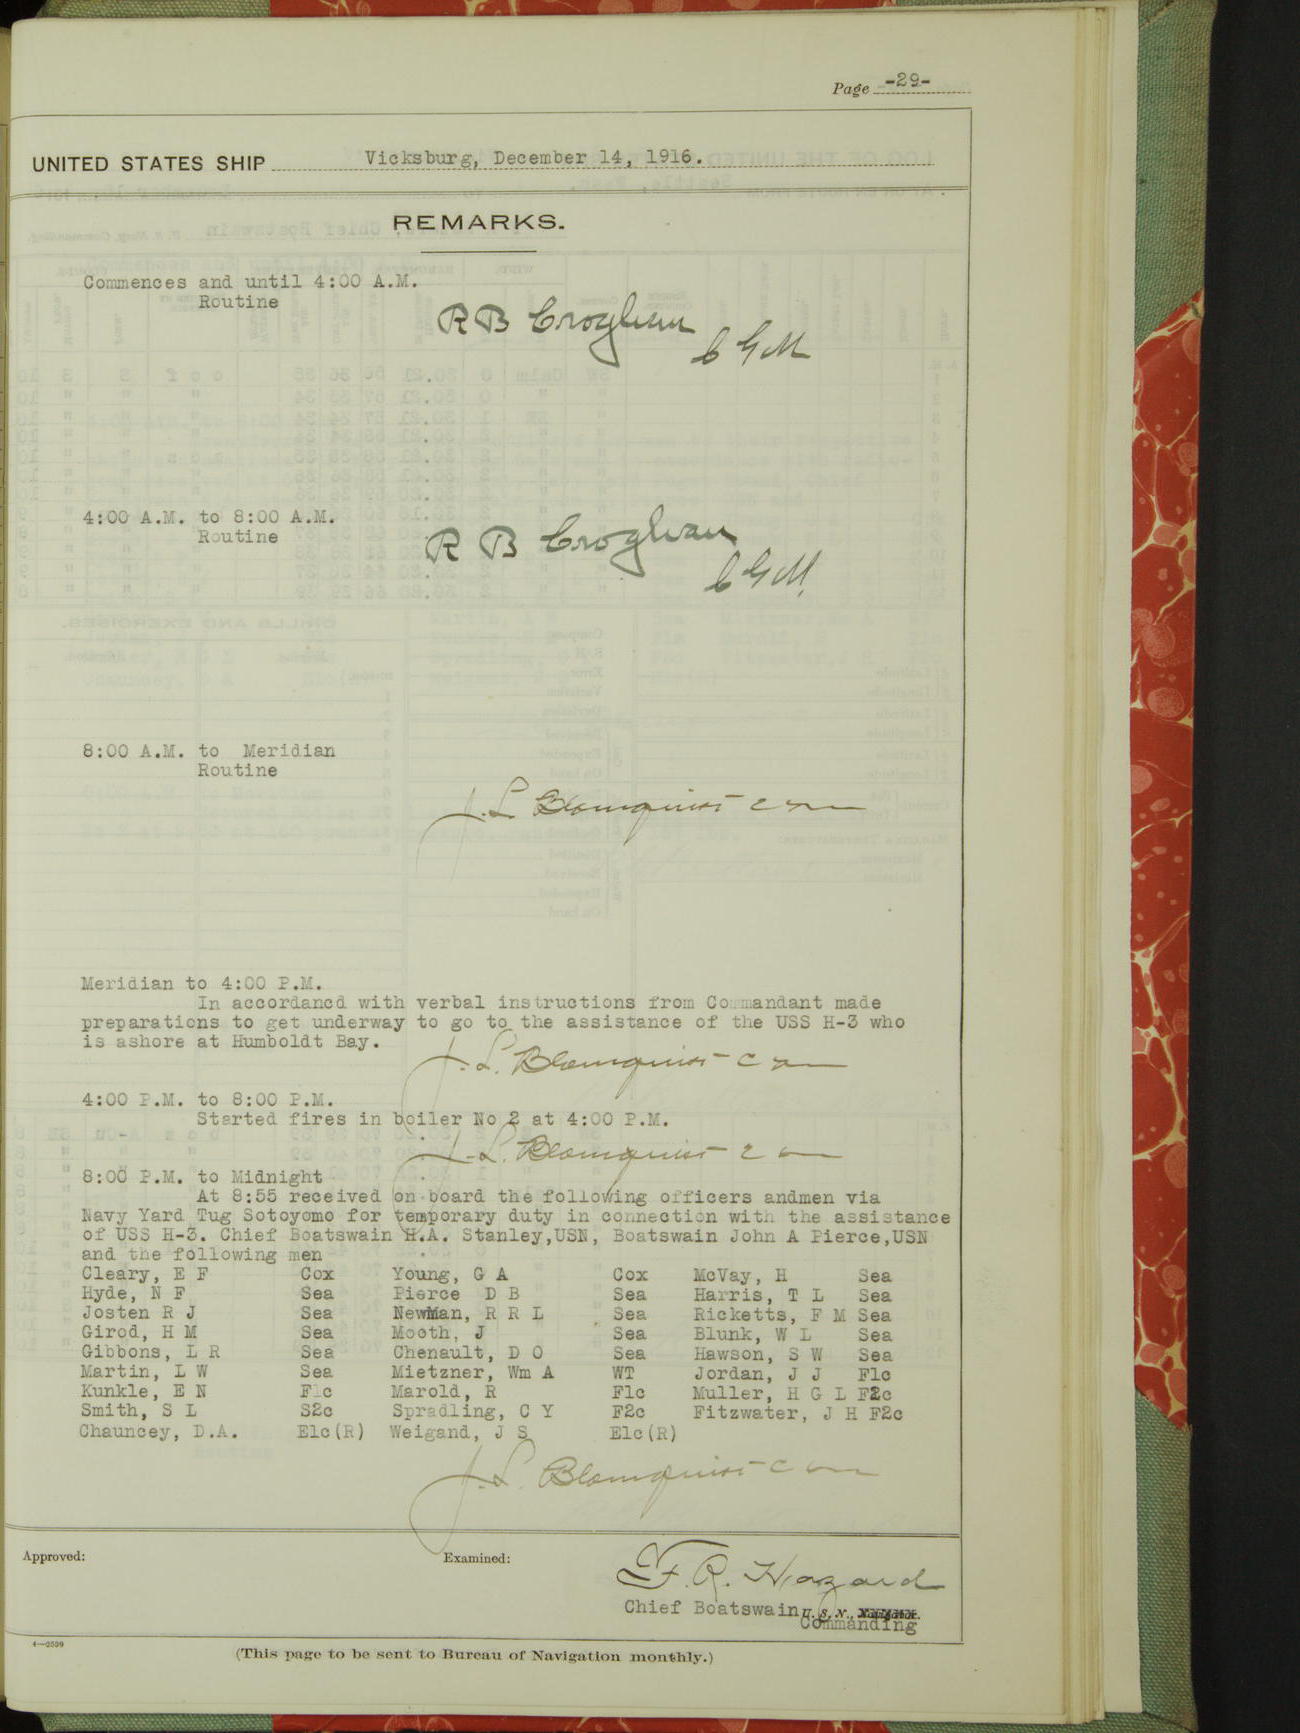 Page -29-
UNITED STATES SHIP Vicksburg, December 14, 1916.
REMARKS.
Commences and until 4:00 A.M.
Routine
R B Croghan
C G M
4:00 A.M. to 8:00 A.M.
Routine
R B Croghan
C G M.
8:00 A.M. to Meridian
Routine
J. L. Blomquist C
Meridian to 4:00 P.M.
In accordancd with verbal instructions from Commandant made
preparations to get underway to go to the assistance of the USS H-3 who
is ashore at Humboldt Bay.
J. L. Blomquist C
4:00 P.M. to 8:00 P.M.
Started fires in boiler No 2 at 4:00 P.M.
J. L. Blomquist C
8:00 P.M. to Midnight
At 8:55 received on board the following officers andmen via
Navy Yard Tug Sotoyomo for temporary duty in connection with the assistance
of USS H-3. Chief Boatswain H.A. Stanley,USN, Boatswain John A Pierce,USN
and the following men
Cleary, E F Cox Young, G A Cox McVay, H Sea
Hyde, N F Sea Pierce D B Sea Harris, T L Sea
Josten R J Sea Newman, R R L Sea Ricketts, F M Sea
Girod, H M Sea Mooth, J Sea Blunk, W L Sea
Gibbons, L R Sea Chenault, D O Sea Hawson, S W Sea
Martin, L W Sea Mietzner, Wm A WT Jordan, J J F1c
Kunkle, E N F1c Marold, R F1c Muller, H G L F2c
Smith, S L S2c Spradling, C Y F2c Fitzwater, J H F2c
Chauncey, D.A. E1c(R) Weigand, J S E1c(R)
J. L. Blomquist C
Approved: Examined:
F. R. Hazard
Chief Boatswain U. S. N., Navigator.
Commanding
4—2539
(This page to be sent to Bureau of Navigation monthly.)